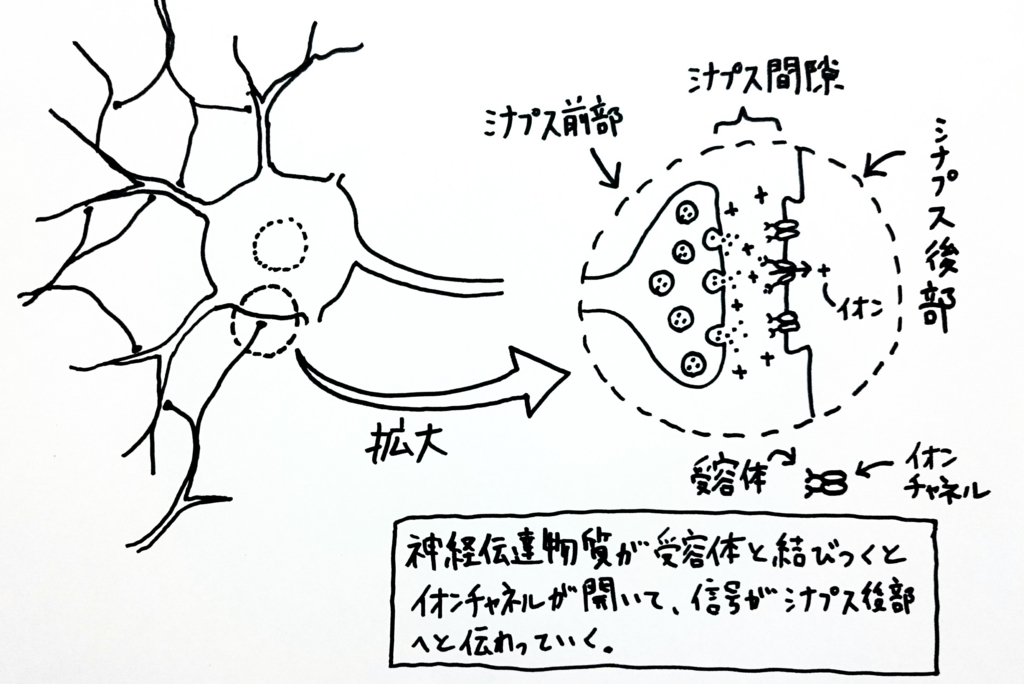 シナプス間隙
シナプス前部
シナプス後部
イオン
拡大
受容体
イオン
チャネル
神経伝達物質が受容体と結びつくと
イオンチャネルが開いて、信号がシナプス後部
へと伝わっていく。